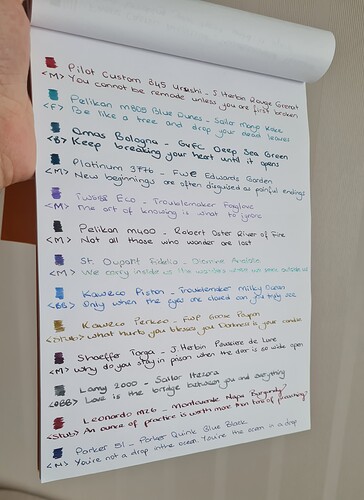 Pilot Custom 845 Urushi - J. Herbin Rouge Grenat
<M> You cannot be remade unless you are first broken
Pelikan M805 Blue Dunes - Sailor
<F> Be like a tree and drop your dead leaves
Omas Bologna - GvFC Deep Sea Green
<B> Keep breaking your heart until it opens
Platinum 3776 - FWE Edwards Garden
<M> New beginnings are often disguised as painful endings
TWSBI Eco - Troublemaker Foxglove
<M> The art of knowing is what to ignore
Pelikan M400 - Robert Oster River of Fire
<M> Not all those who wonder are lost
St. Dupont Fidelio - Diamine
<M> We carry inside us the wonders
Kaweco Piston - Troublemaker Milky Ocean
<BB> Only when the eyes are closed can you truly see
Kaweco Perkeo - FWP Goose Poupon
<Stub> What hurts you blesses you. Darkness is your candle
Sheaffer Targa - J. Herbin Poussiere de Lune
<M> Why do you stay in prison when the door is so wide open
Lamy 2000 - Sailor
<OBB> Love is the bridge between you and everything
Leonardo MZ6 - Monteverde Napa Burgundy
<Stub> An ounce of practice is worth more than tons of preaching
Parker 51 - Parker Quink Blue Black
<M> You're not a drop in the ocean. You're the ocean in a drop